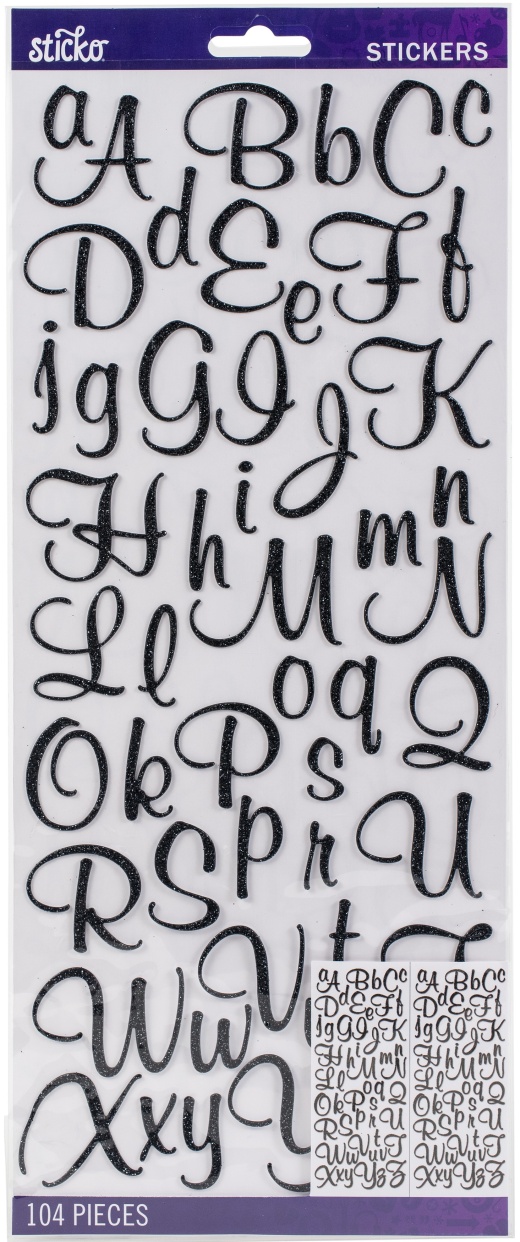 sticko
STICKERS
a A B b C c
D d E e F f
j g G I J K
H h i M m n N
L l o q Q
O k P s
R S p r U
W w V t T
X x y Y
a A B b C c a A B b C c
D d E e F f D d E e F f
j g G I J K j g G I J K
H h i M m n N H h i M m n N
L l o q Q L l o q Q
O k P s O k P s
R S p r U R S p r U
W w V u v t T W w V u v t T
X x y Y z Z X x y Y z Z
104 PIECES